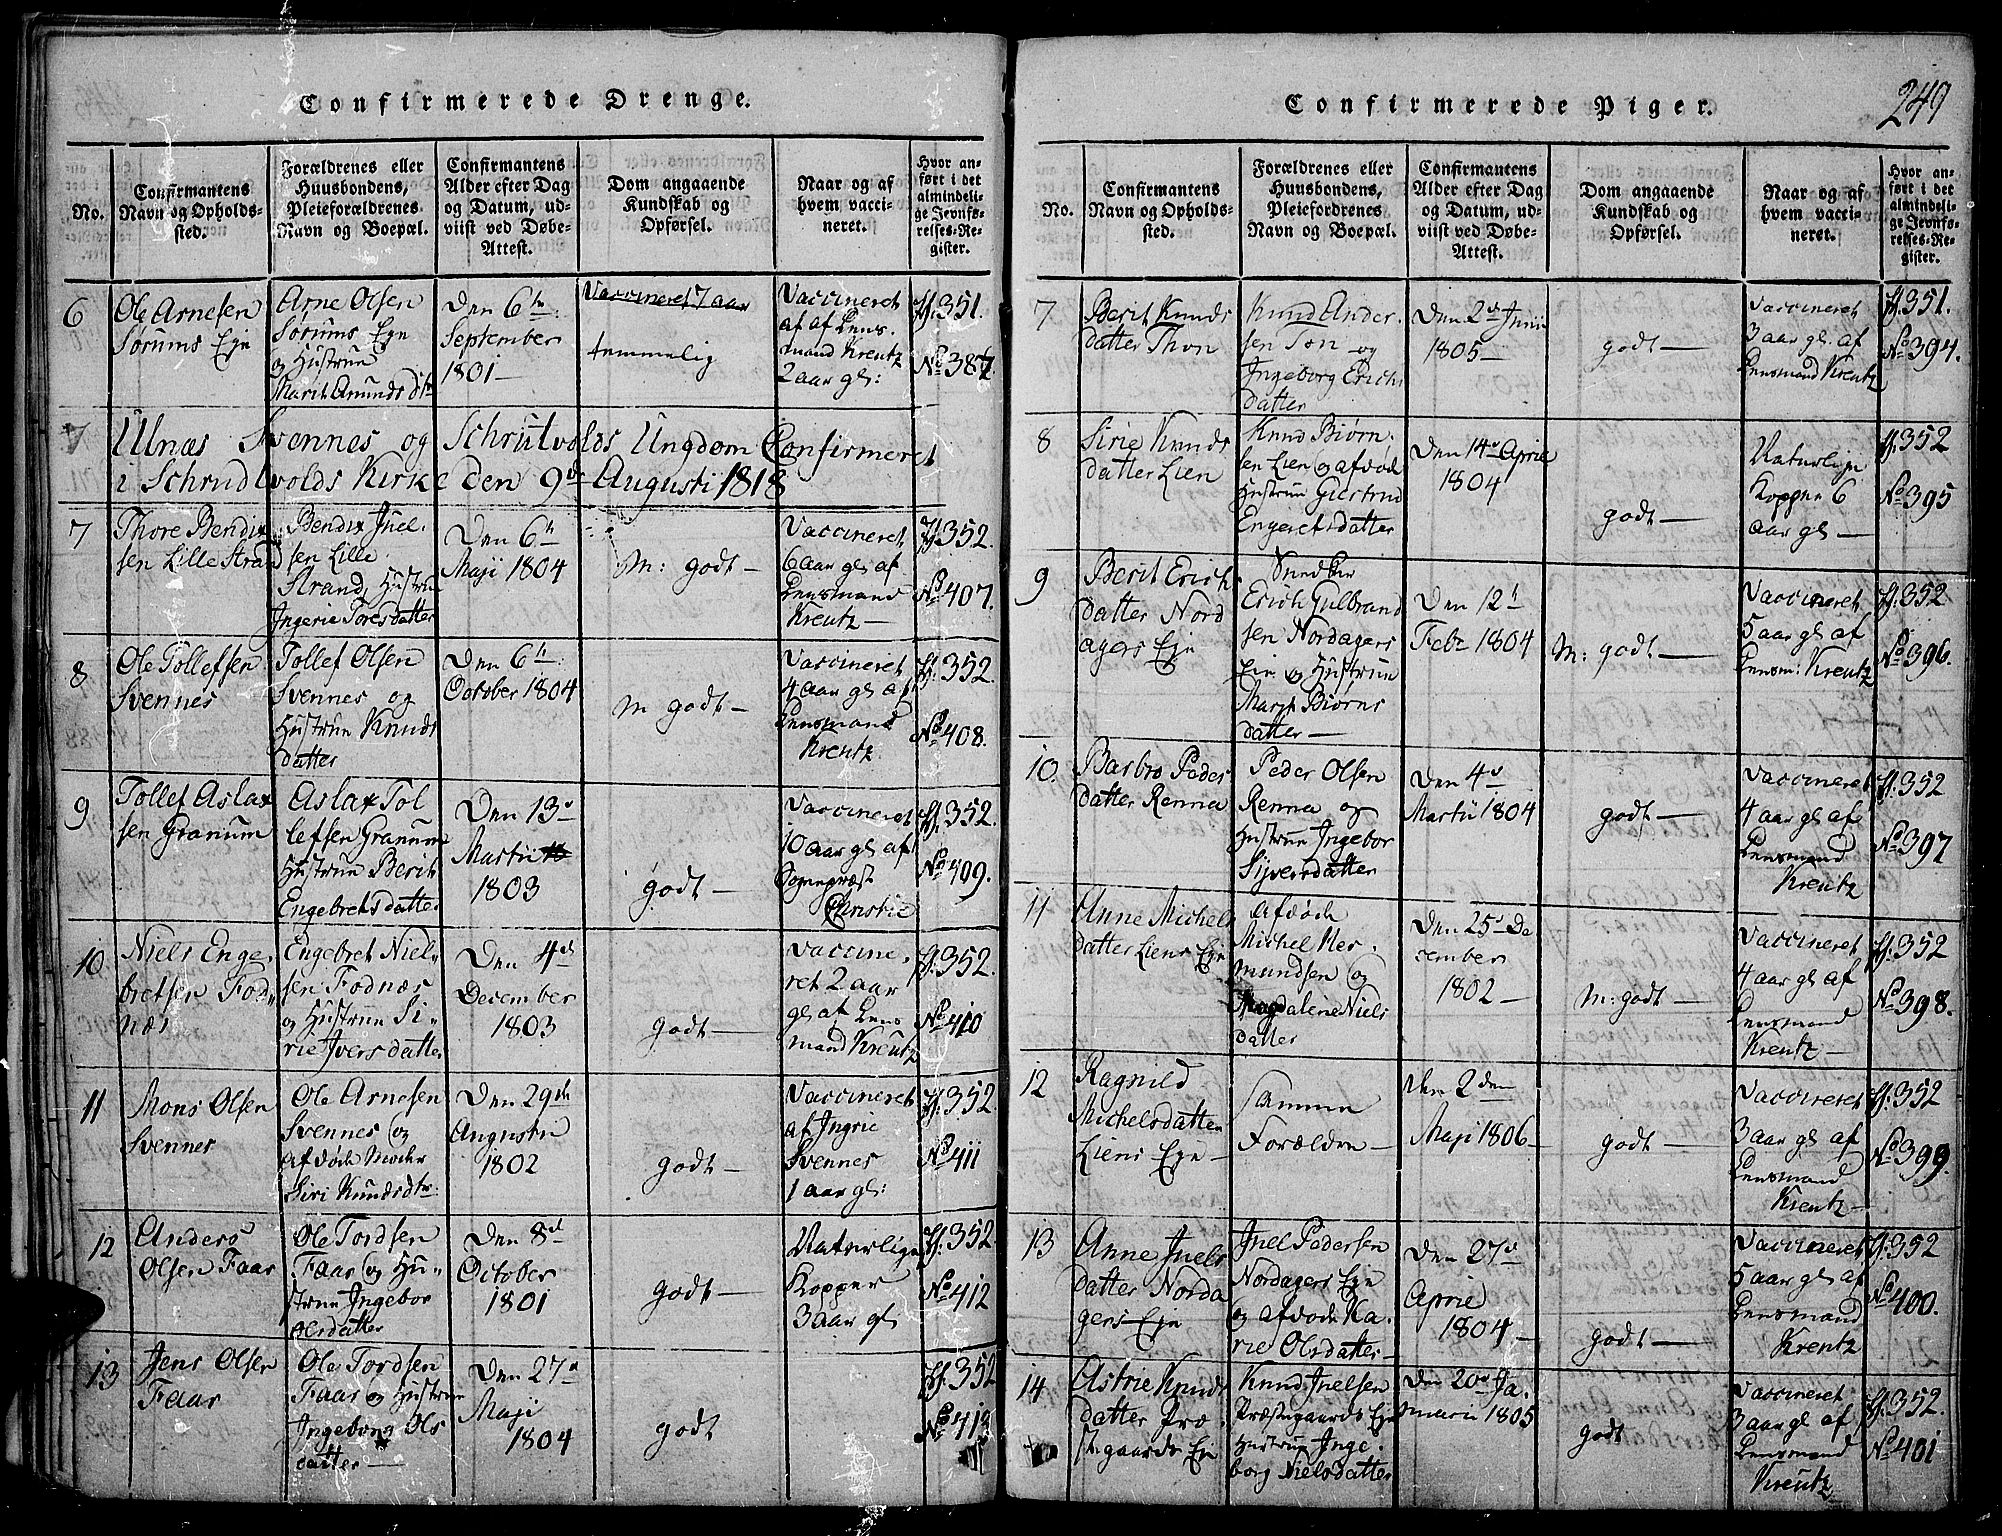 Confirmerede Drenge.
No.
Confirmantens
Navn og Opholds-
sted.
Forældrenes eller
Huusbondens,
Pleieforældrenes
Navn og Boepæl.
Confirmantens
Alder efter Dag
og Datum, ud-
viist ved Døbe-
Attest.
Dom angaaende
Kundskab og
Opførsel.
Naar og af
hvem vacci-
neret.
Hvor an-
ført i det
almindeli-
ge Jevnfø-
relses-Re-
gister.
6
Ole Arnesen
Sørums Eje
Arne Olsen
Sørums Eje
og Hustrue
Marit Amunds
Den 6te
September
1801-
Vaccineret 7 aar
temmelig
Vaccineret
af af Lens-
mand Kreutz
2 aar gl:
351.
No 387.
7
Ulnæs Svennes og Schrutvolds Ungdom Confirmeret
i Schrudtvolds Kirke den 9de Augusti 1818
7
Thore Bendix
sen Lille Strand
Bendix Juel-
sen Lille
Strand, Hustrue
Ingerie Toresdatter
Den 6te
Maji 1804
M: godt -
Vaccineret
6 aar gl af
Lensmand
Kreutz -
352.
No 407.
8
Ole Tollefsen
Svennes
Tollef Olsen
Svennes og
Hustrue Knuds
datter
Den 6te
October 1804
M godt -
Vaccineret
4 aar gl af
Lensmand
Kreutz
352.
No 408.
9
Tollef Aslax
sen Granum
Aslax Tol
lefsen Granum
Hustrue Berit
Engebretsdatter
Den 13de
Martii
1803
godt -
Vaccineret
10 aar gl af
Sognepræst
352.
No 409.
10
Niels Enge-
bretsen Fod-
næs
Engebret Niel-
sen Fodnæs
og Hustrue Si-
rie Iversdatter
Den 4de
December
1803
godt -
Vaccine-
ret 2 aar
gl af Lens
mand Kreutz
352.
No 410
11
Mons Olsen
Svennes
Ole Arnesen
Svennes og
afdøde Moder
Siri Knudsdtr:
Den 29de
Augusti
1802
godt -
Vaccineret
af Ingrie
Svennes
1 aar gl:
352.
No 411
12
Anders
Olsen Faar
Ole Tordsen
Faar og Hu-
strue Ingebor
Olsdatter
Den 8de
October
1801
godt -
Naturlige
Kopper
3 aar gl
352.
No 412
13
Jens Olsen
Faar
Ole Tordsen
Faar og Hustrue
Ingeborg Ols
datter -
Den 27de
Maji
1804
godt
352
No 413
Confirmerede Piger.
249
No.
Confirmantens
Navn og Opholds-
sted.
Forældrenes eller
Huusbondens,
Pleiefordrenes
Navn og Boepæl.
Confirmantens
Alder efter Dag
og Datum, ud-
viist ved Døbe-
Attest.
Dom angaaende
Kundskab og
Opførsel.
Naar og af
hvem vacci-
neret.
Hvor an-
ført i det
almindeli-
ge Jevnfø-
relses-Re-
gister.
7
Berit Knuds
datter Thon
Knud Ander-
sen Ton og
Ingeborg Erichs
datter
Den 2de Junii
1805-
godt -
Vaccineret
3 aar gl af
Lensmand Kreutz
351.
No 394.
8
Sirie Knuds
datter Lien
Knud Biørn-
sen Lien og afdøde
Hustrue Giertrud
Engeretsdatter
Den 14de Aprie
1804
godt -
Naturlige
Kopper 6
aar gl -
352
No 395
9
Berit Erichs
datter Nord
agers Eje
Snedker
Erich Gulbrand
sen Nordagers
Eie og Hustrue
Marit Biørns
datter -
Den 12te
Febr 1804
M: godt -
Vaccineret
5 aar gl af
Lensm: Kreutz
352
No 396.
10.
Barbro Peders
datter Renna
Peder Olsen
Renna og
Hustrue Ingebor
Sijversdatter
Den 4de
Martii 1804
godt -
Vaccineret
4 aar gl af
Lensmand
Kreutz
352
No 397
11
Anne Michels
datter Liens Eje
Afdøde
Michel Her-
mundsen og
Magdalene Niels
datter
Den 25de De
cember
1802 -
M: godt -
Vaccineret
4 aar gl af
Lensmand
Kreutz -
352
No 398.
12
Ragnild
Michelsdatter
Liens Eje
Samme
Forælden -
Den 2den
Maji 1806 -
godt -
Vaccineret
3 aar gl af
Lensmand
Kreutz -
352
No 399.
13
Anne Juels
datter Norda
gers Eje
Juel Pedersen
Nordagers Eje
og afdøde Ka-
rie Olsdatter
Den 27de
Aprie
1804 -
godt -
Vaccineret
5 aar gl af
Lensmand
Kreutz
352
No 400.
14
Astrie Knuds
datter Præ-
stgaards Eje
Knud Juelsen
Præstegaards Eje
Hustrue Inge-
borg Nielsdatter
Den 20de Ja-
nuarii 1805
godt
Vaccineret
3 aar gl af
Lensmand
Kreutz
352.
No 401